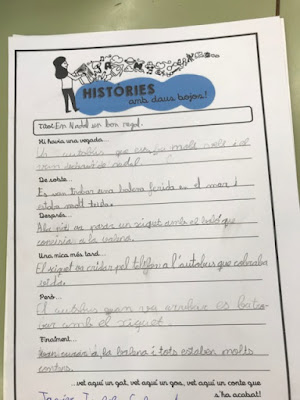 HISTÒRIES
amb daus bojos!
Títol: En Nadal un bon regal.
Hi havia una vegada...
Un autobús que era molt molt
De sobte...
Es van trobar una balena ferida en el mar i
estaba molt trista.
Després...
va pasar un xiquet amb el baló que
coneixia a la balena.
Una mica més tard...
El xiquet va cridar pel telèfon a l'autobus que cobraba
vida.
Però...
El autobus quan va arribar es
amb el xiquet.
Finalment...
a la balena i tots estaben molts
contens.
...vet aquí un gat, vet aquí un gos, vet aquí un conte que
s'ha acabat!